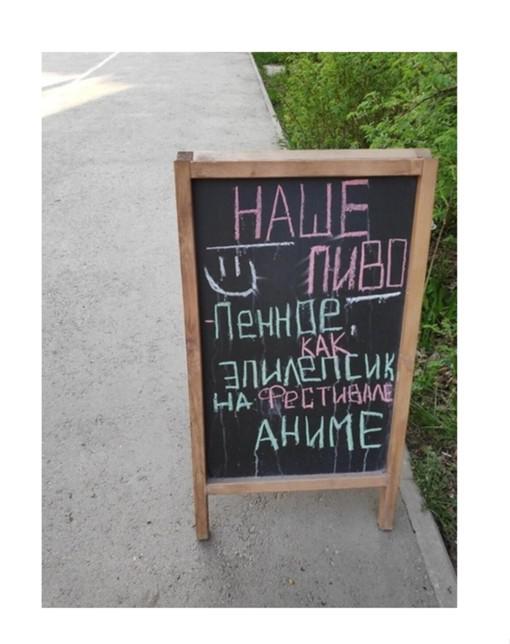 НАШЕ
ПИВО
-ПЕННОЕ,
КАК
ЭПИЛЕПСИК
НА ФЕСТИВАЛЕ
АНИМЕ